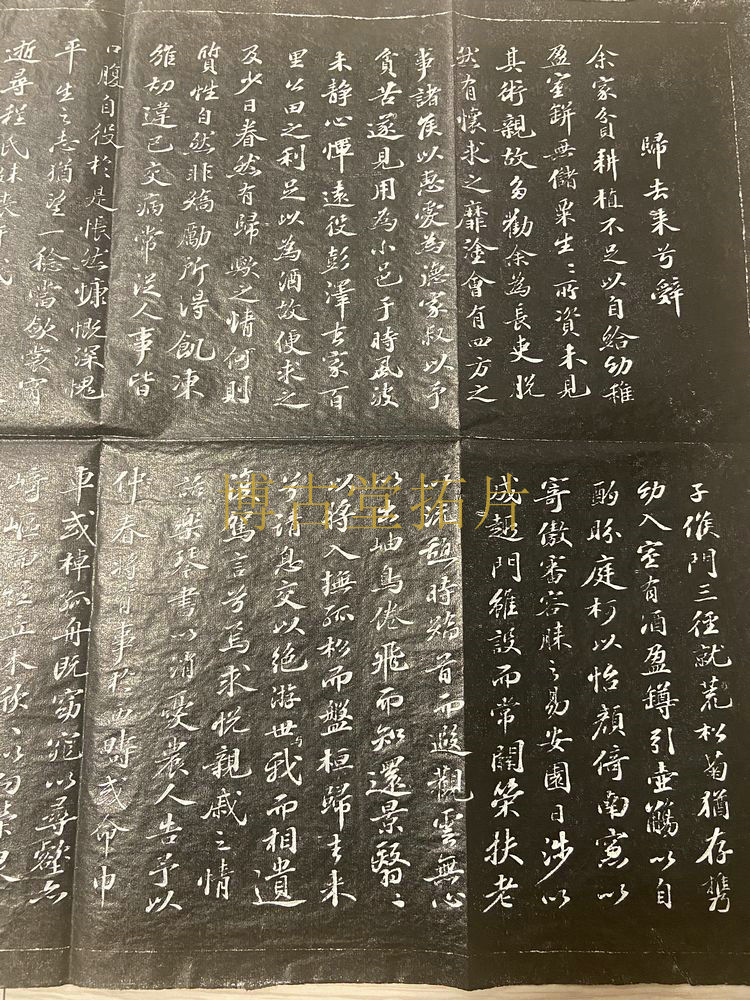 歸去来兮辭
余家貧耕植不足以自給幼稚
盈室缾無儲粟生〻所資未見
其術親故多勸余為長吏脱
然有懷求之靡塗會有四方之
事諸侯以惠愛為德家叔以予
貧苦遂見用為小邑于時風波
未静心憚遠役彭澤去家百
里公田之利足以為酒故便求之
及少日眷然有歸歟之情何則
質性自然非矯勵所得飢凍
雖切違已交病常從人事皆
口腹自役於是悵然慷慨深愧
平生之志猶望一稔當斂裳宵
逝尋程氏妹喪于武
子候門三徑就荒松菊猶存携
幼入室有酒盈罇引壺觴以自
酌眄庭柯以怡顔倚南窻以
寄傲審容膝之易安園日涉以
成趣門雖設而常關策扶老
以流憩時矯首而遐觀雲無心
以出岫鳥倦飛而知還景翳〻
以將入撫孤松而盤桓歸去来
兮請息交以絶游世与我而相遺
復駕言兮焉求悦親戚之情
話樂琴書以消憂農人告予以
仲春將有事於西疇或命巾
車或棹孤舟既窈窕以尋壑亦
崎嶇而經丘木欣〻以向榮泉
博古堂拓片